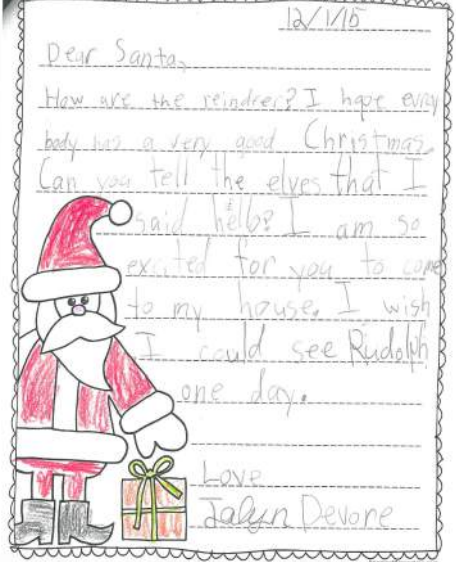 12/1/15
Dear Santa,
How are the reindeer? I hope evry
body has a very good Christmas.
Can you tell the elves that I
said hello? I am so
excited for you to come
to my house. I wish
I could see Rudolph
one day.
Love
Jalyn Devore